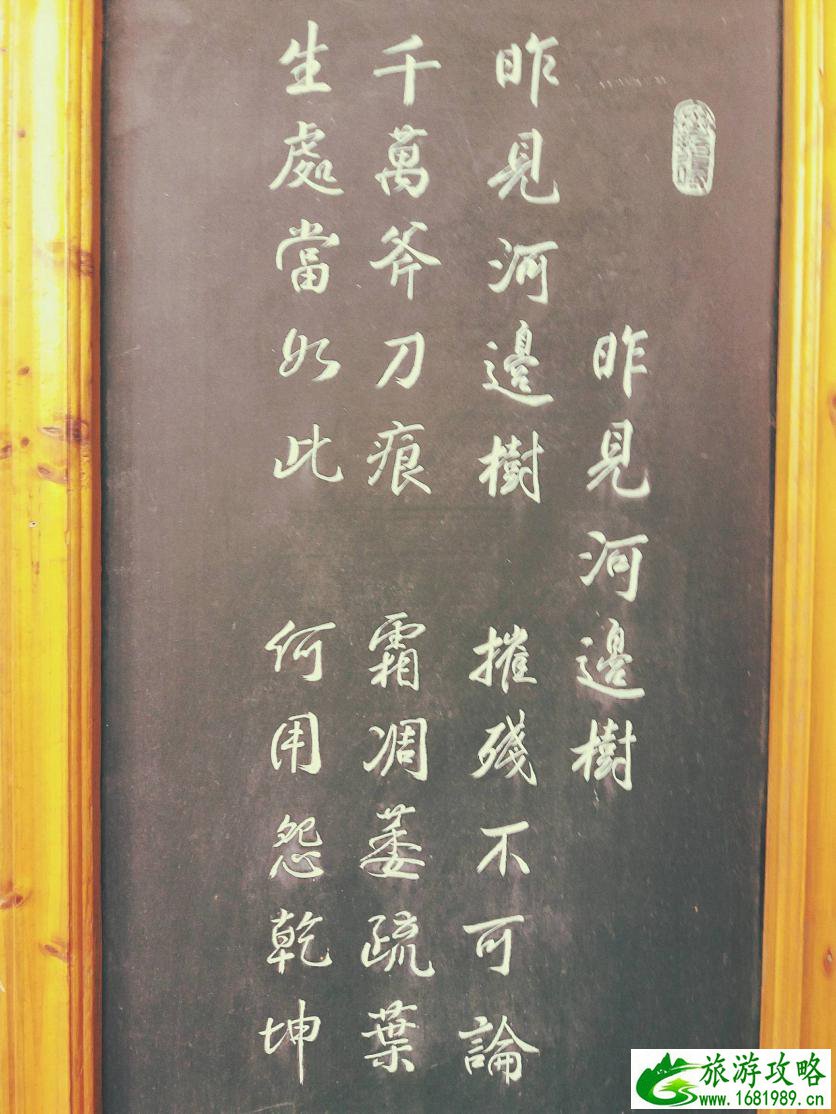 昨見河邊樹
昨見河邊樹 摧殘不可論
千萬斧刀痕 霜凋萎疏葉
生處當如此 何用怨乾坤
旅游攻略
www.1681989.cn